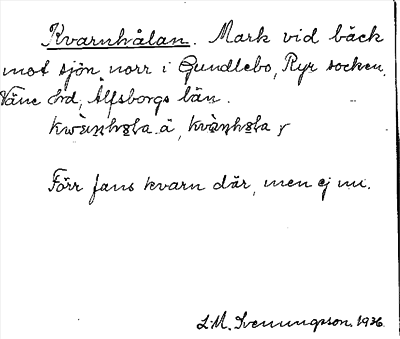 Kvarnhålan. Mark vid bäck
mot sjön norr i Gundlebo, Ryr socken,
Väne hd, Älfsborgs län.
Förr fans kvarn där, men ej nu.
L.M. Svenungsson. 1936